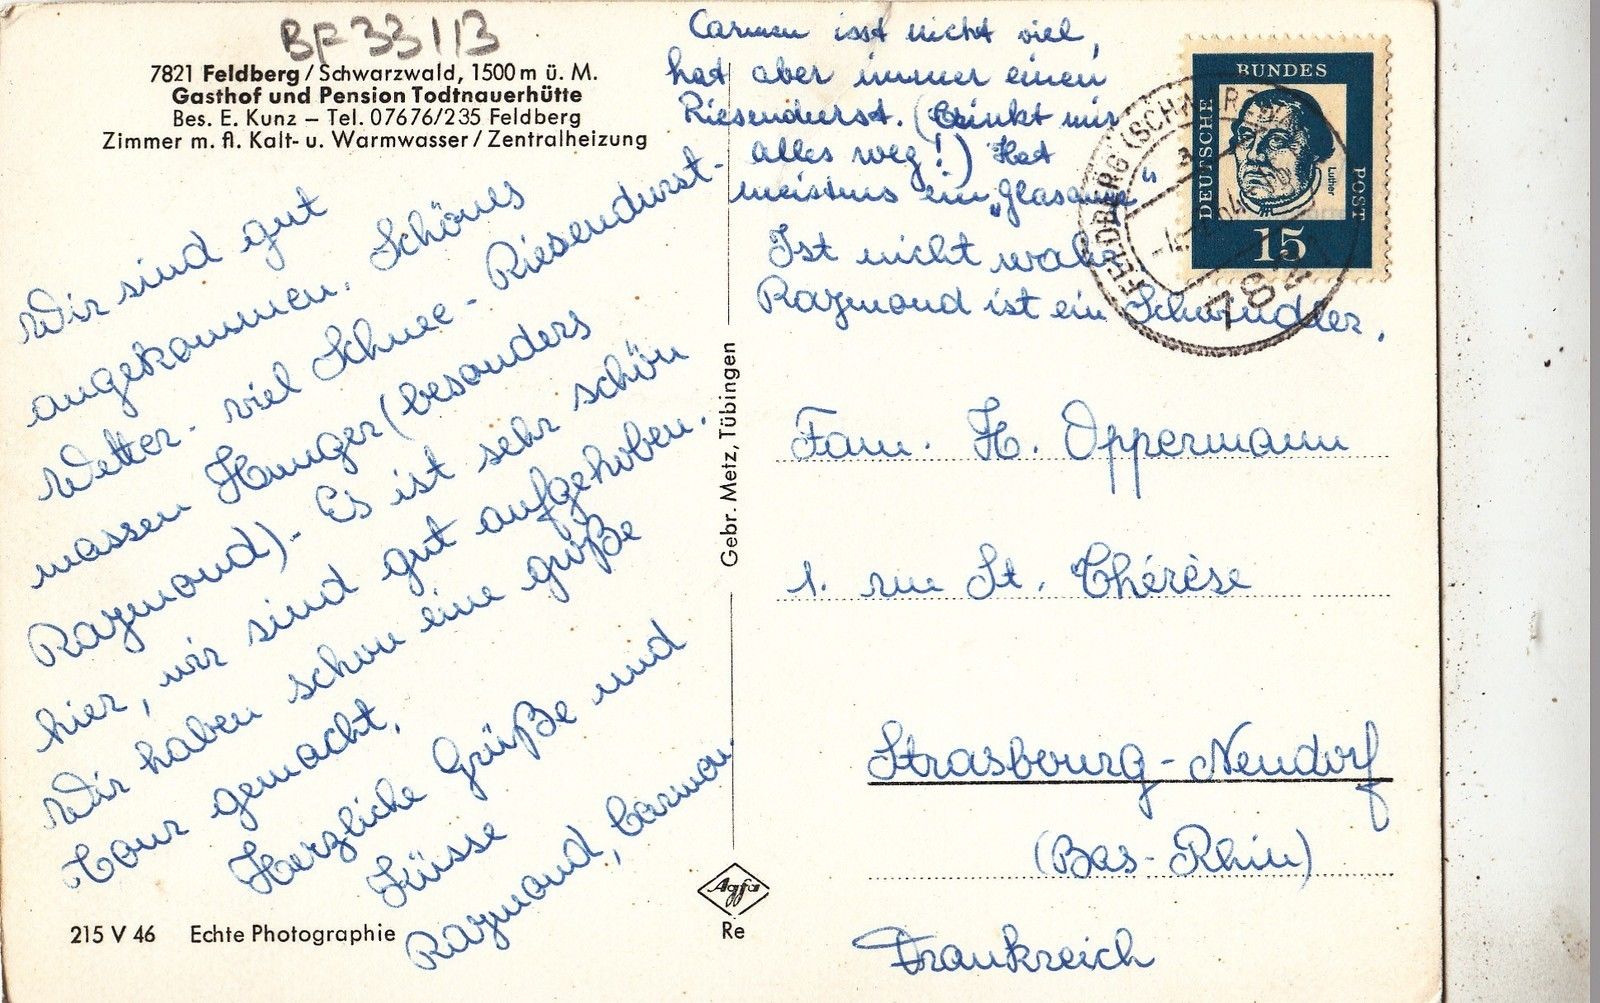 BF 33113
7821 Feldberg / Schwarzwald, 1500 m ü. M.
Gasthof und Pension Todtnauerhütte
Bes. E. Kunz – Tel. 07676/235 Feldberg
Zimmer m. fl. Kalt- u. Warmwasser / Zentralheizung
Wir sind gut
angekommen. Schönes
Wetter - viel Schnee - Riesendurst -
massen Hunger (besonders
Raymond) - Es ist sehr schön
hier, wir sind gut aufgehoben.
Wir haben schon eine große
Tour gemacht.
Herzliche Grüße und
Küsse
Raymond, Carmen
215 V 46 Echte Photographie
Gebr. Metz, Tübingen
Agfa
Re
Carmen isst nicht viel,
hat aber immer einen
Riesendurst. (trinkt mir
alles weg!) Hat
meistens ein
Ist nicht wahr
Raymond ist ein Schwindler.
BUNDES
DEUTSCHE
POST
Luther
15
FELDBERG (SCHWARZWALD)
Fam. H. Oppermann
1. rue St. Thérèse
Strasbourg - Neudorf
(Bas - Rhin)
Frankreich